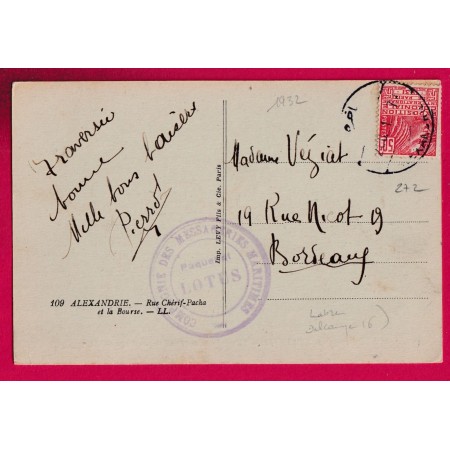 Traversée
bonne
Mille bons baisers
Pierrot
109 ALEXANDRIE. — Rue Chérif-Pacha
et la Bourse. — LL.
COMPAGNIE DES MESSAGERIES MARITIMES
Paquebot
LOTUS
Imp. LEVY Fils & Cie, Paris
1932
Madame Véziat
19 Rue Nicot 19
Bordeaux
272